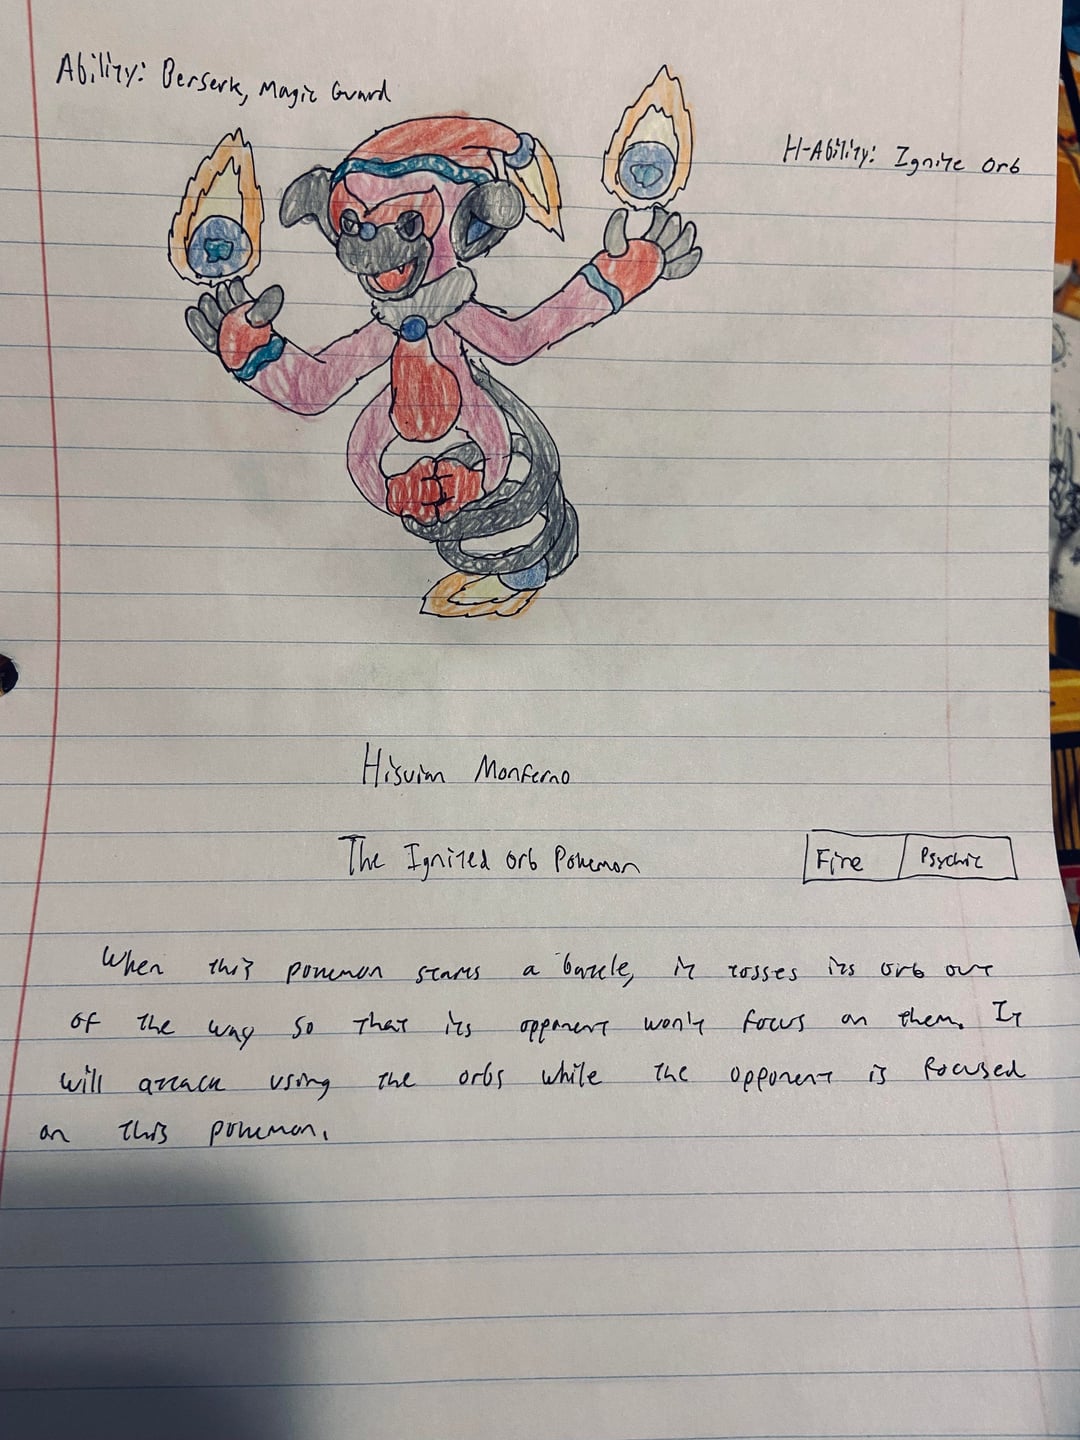 Ability: Berserk, Magic Guard
H-Ability: Ignite Orb
Hisuian Monferno
The Ignited Orb Pokemon
Fire Psychic
When this pokemon starts a battle, it tosses its orb out
of the way so that its opponent won't focus on them. It
will attack using the orbs while the opponent is focused
on this pokemon.